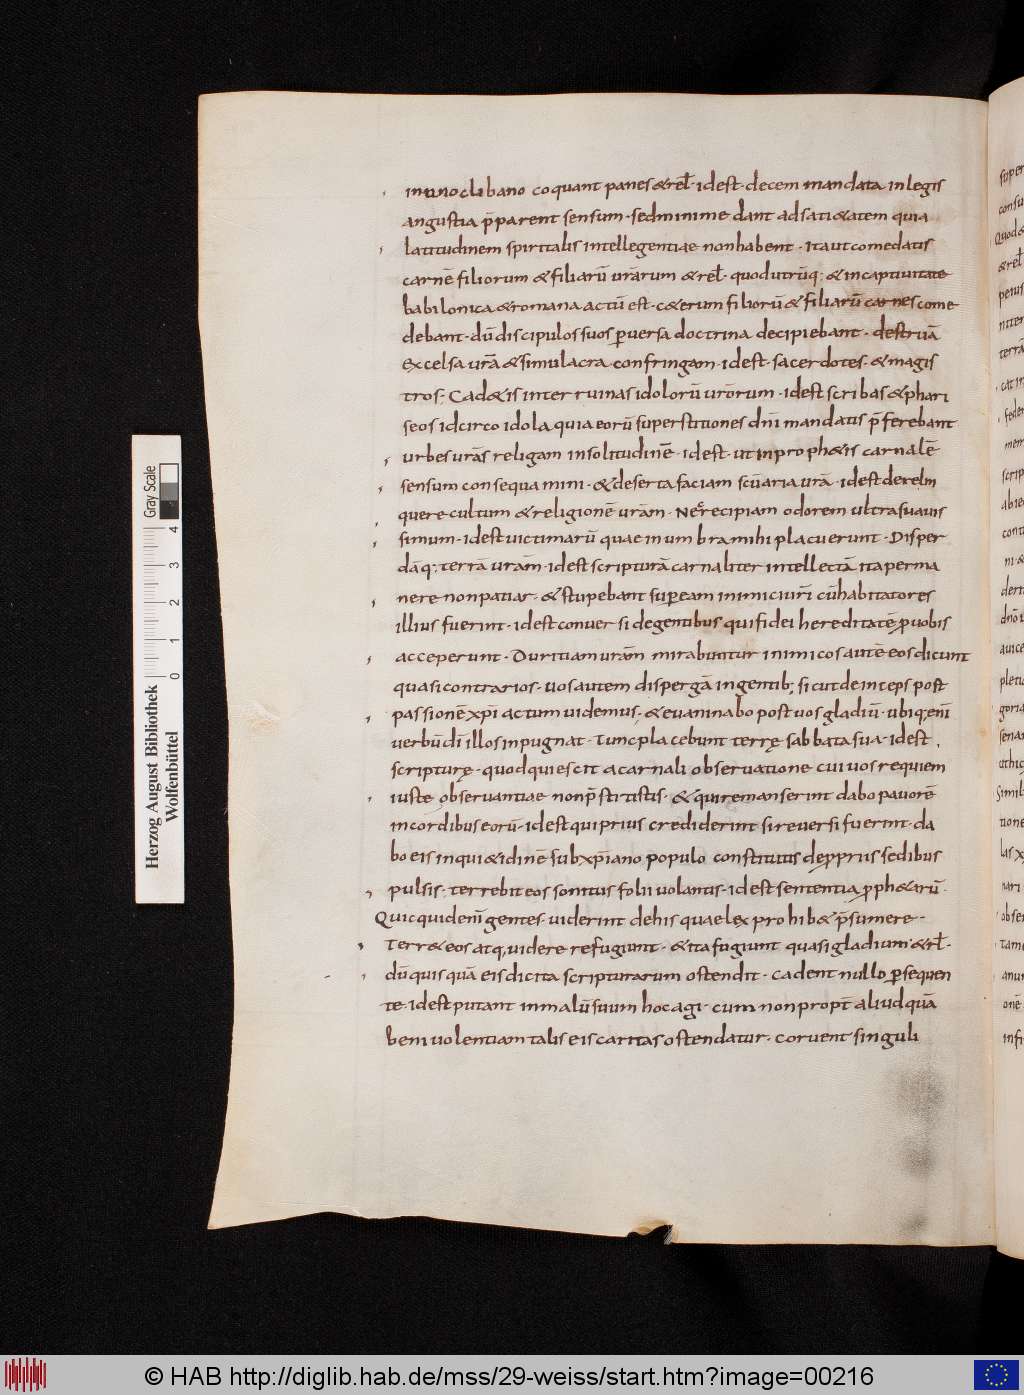 in uno clibano coquant panes & rel̄ · idest · decem mandata in legis
angustia p̄parent sensum · sed minime dant ad sati&atem quia
latitudinem spiritalis intellegentiae non habent · Ita ut comedatis
carnē filiorum & filiarū urārum & rel̄ · quod utrūq; & in captiuitate
babilonica & romana actū est · c&erum filiorū & filiarū carnes come
debant · dū discipulos suos puersa doctrina decipiebant · destruā
excelsa urā & simulacra confringam · idest · sacerdotes · & magis
tros · Cad&is inter ruinas idolorū urōrum · idest scribas & phari
seos idcirco idola quia eorū superstitiones dn̄i mandatis p̄ferebant
urbes urās religam in solitudinē · idest · ut in proph&is carnalē
sensum consequamini · & deserta faciam scūaria urā · idest derelin
quere cultum & religionē urām · Nec recipiam odorem ultra suauis
simum · idest uictimarū quae in umbra mihi placuerunt · Disper
dāq; terrā urām · idest scripturā carnaliter intellectā ita perma
nere non patiar · & stupebunt super eam inimici ur̄i cū habitatores
illius fuerint · idest conuersi de gentibus qui fidei hereditatē p uobis
acceperunt · Duritiam urām mirabuntur inimicos autē eos dicunt
quasi contrarios · uos autem dispergā in gentib; sicut deinceps post
passionē xp̄i actum uidemus · & euaginabo post uos gladiū · ubiq; enī
uerbū dī illos inpugnat · Tunc placebunt terrę sabbata sua · idest ·
scripturę · quod quiescit a carnali obseruatione cui uos requiem
iuste obseruantiae non p̄stitistis · & qui remanserint dabo pauorē
in cordibus eorū · idest qui prius crediderint si reuersi fuerint · da
bo eis inqui&idinē sub xp̄iano populo constitutis de propriis sedibus
pulsis · terrebit eos sonitus folii uolantis · idest sententia proph&arū ·
Quicquid enī gentes · uiderint de his quae lex prohib& p̄sumere ·
Terr& eos atq; uidere refugiunt · & ita fugiunt quasi gladium & rl̄ ·
dū quisquā eis dicta scripturarum ostendit · cadent nullo psequen
te · idest putant in malū suum hoc agi · cum non propt̄ aliud quā
beniuolentiam talis eis caritas ostendatur · corruent singuli
super
consu
Quod&
& rel̄
peius
niter
terrā
cat in
feder
mem
scrip
abie
contr
ni &
deri
dnō u
auice
pleti
goria
senar
&thic
Simil
tione
las x
nari
obser
tam
anun
onē
infi
Gray Scale
0 1 2 3 4
Herzog August Bibliothek
Wolfenbüttel
© HAB http://diglib.hab.de/mss/29-weiss/start.htm?image=00216